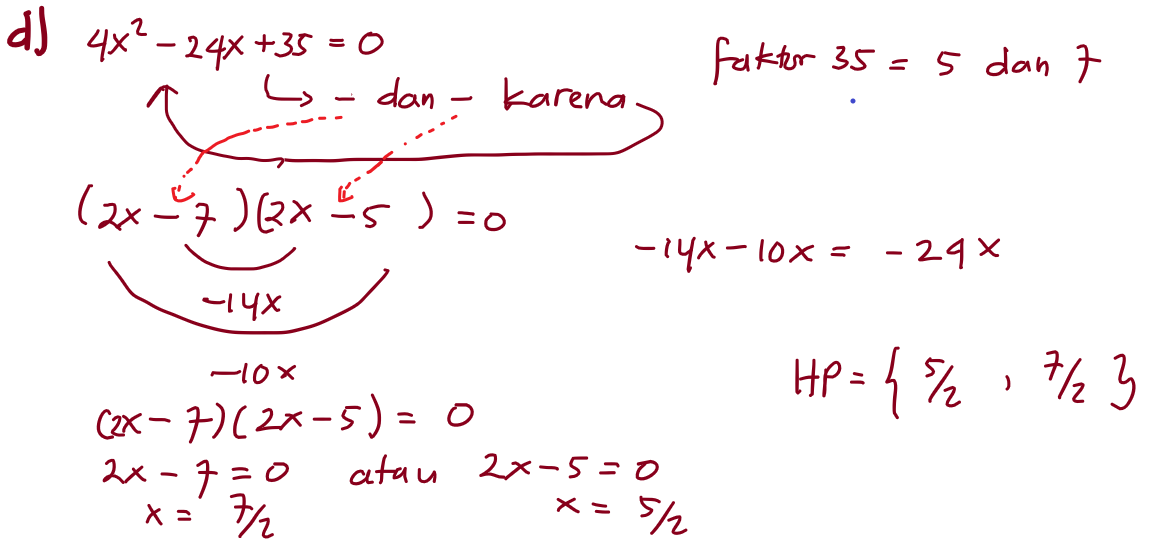 d) 4x² - 24x + 35 = 0
faktor 35 = 5 dan 7
- dan - karena
(2x - 7)(2x - 5) = 0
-14x - 10x = -24x
-14x
-10x
HP = { 5/2 , 7/2 }
(2x - 7)(2x - 5) = 0
2x - 7 = 0 atau 2x - 5 = 0
x = 7/2 x = 5/2